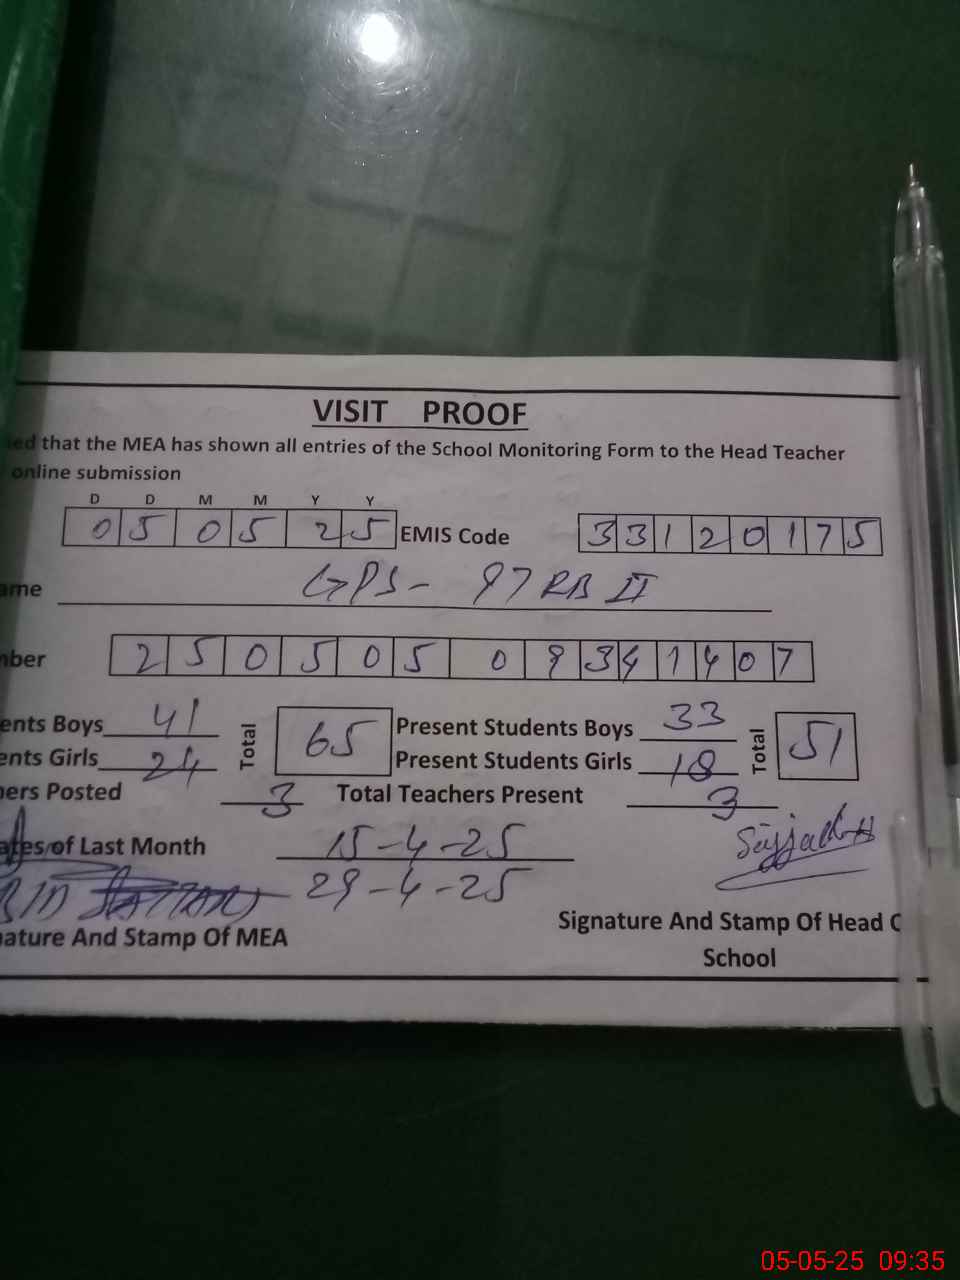 VISIT PROOF
ied that the MEA has shown all entries of the School Monitoring Form to the Head Teacher
online submission
D D M M Y Y
0 5 0 5 2 5 EMIS Code 3 3 1 2 0 1 7 5
ame GPS- 97 RB II
nber 2 5 0 5 0 5 0 9 3 4 1 4 0 7
ents Boys 41 Total 65 Present Students Boys 33 Total 51
ents Girls 24 Present Students Girls 18
ners Posted 3 Total Teachers Present 3
ates of Last Month 15-4-25
29-4-25
nature And Stamp Of MEA
Signature And Stamp Of Head O
School
05-05-25 09:35